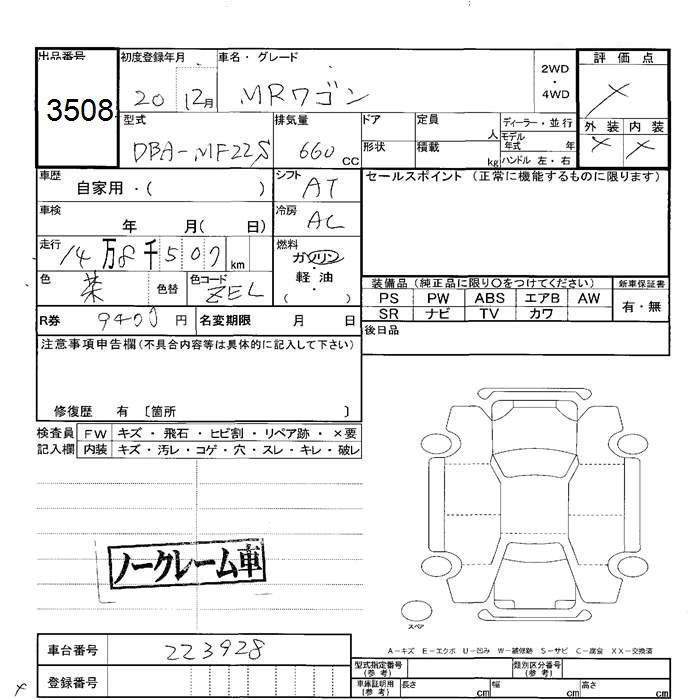 出品番号
3508
初度登録年月
20 12月
車名・グレード
MRワゴン
2WD
・
4WD
評価点
×
外装 内装
× ×
型式
DBA-MF22S
排気量
660 cc
ドア
定員
人
形状
積載
kg
ディーラー・並行
モデル
年式 年
ハンドル 左・右
車歴
自家用・( )
シフト
AT
セールスポイント (正常に機能するものに限ります)
車検
年 月( 日)
冷房
AC
走行
14万8千507 km
燃料
ガソリン
・
軽油
( )
色
茶
色替
色コード
ZEL
装備品 (純正品に限り○をつけてください)
新車保証書
PS PW ABS エアB AW
SR ナビ TV カワ
有・無
R券
9400 円
名変期限 月 日
後日品
注意事項申告欄(不具合内容等は具体的に記入して下さい)
修復歴 有 〔箇所 〕
検査員
記入欄
FW キズ・飛石・ヒビ割・リペア跡・×要
内装 キズ・汚レ・コゲ・穴・スレ・キレ・破レ
ノークレーム車
スペア
A-キズ E-エクボ U-凹み W-補修跡 S-サビ C-腐食 XX-交換済
車台番号
223928
登録番号
型式指定番号
(参考)
類別区分番号
(参考)
車庫証明用
(参考)
長さ cm
幅 cm
高さ cm